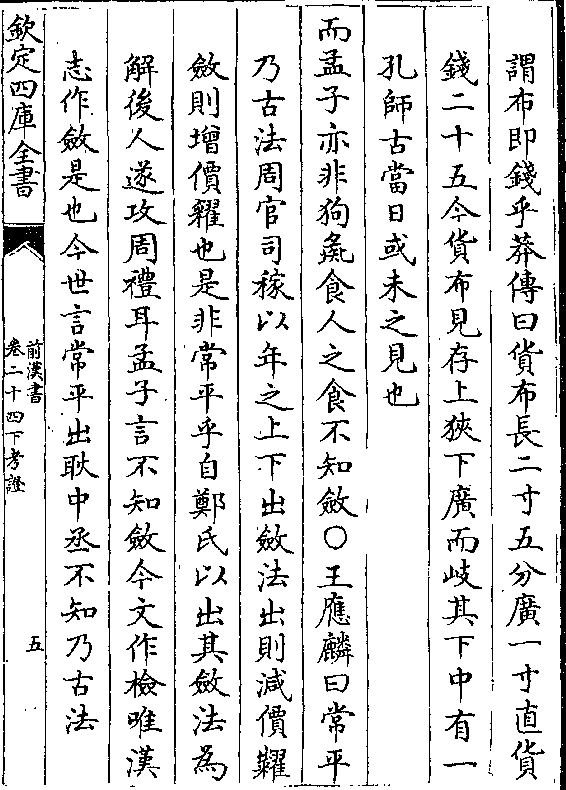 謂布即錢乎莽傳曰貨布長二寸五分廣一寸直貨
錢二十五今貨布見存上狹下廣而岐其下中有一
孔師古當日或未之見也
而孟子亦非狗彘食人之食不知斂○王應麟曰常平
乃古法周官司稼以年之上下出斂法出則減價糶
斂則增價糴也是非常平乎自鄭氏以出其斂法為
解後人遂攻周禮耳孟子言不知斂今文作檢唯漢
志作斂是也今世言常平出耿中丞不知乃古法
欽定四庫全書
前漢書
卷二十四下考證
五